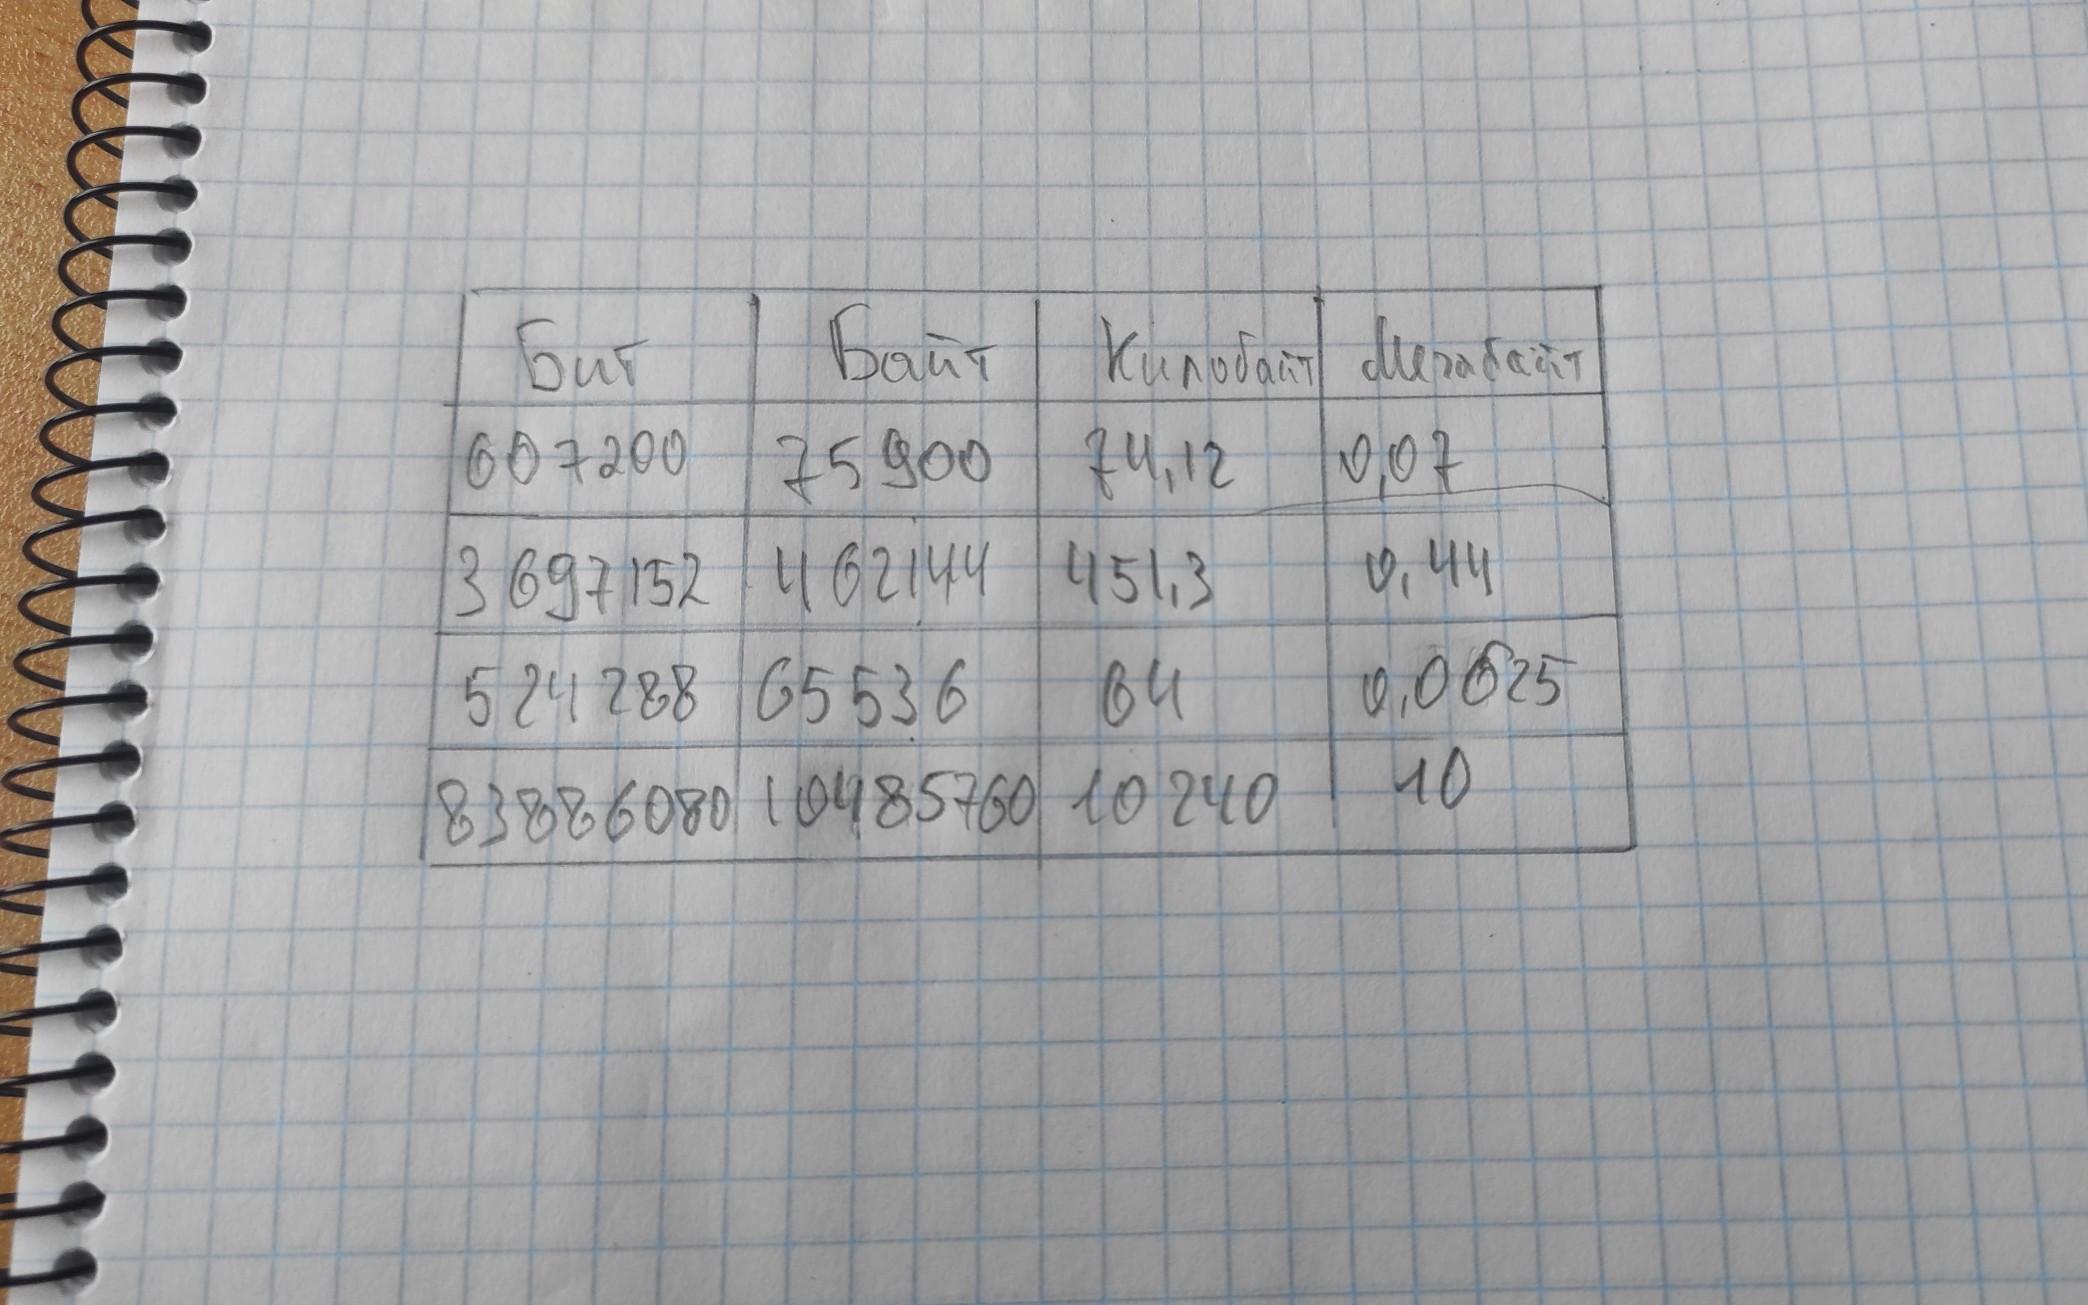 Бит Байт Килобайт Мегабайт
607200 75900 74,12 0,07
3697152 462144 451,3 0,44
524288 65536 64 0,0625
83886080 10485760 10240 10